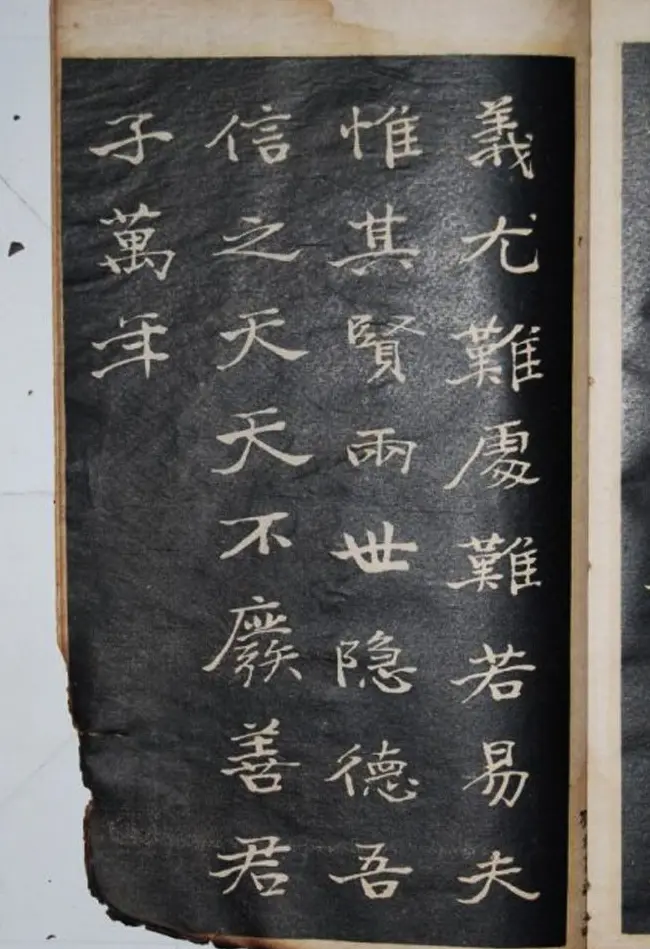 義尤難處難若易夫
惟其賢兩世隐德吾
信之天天不廢善君
子萬年